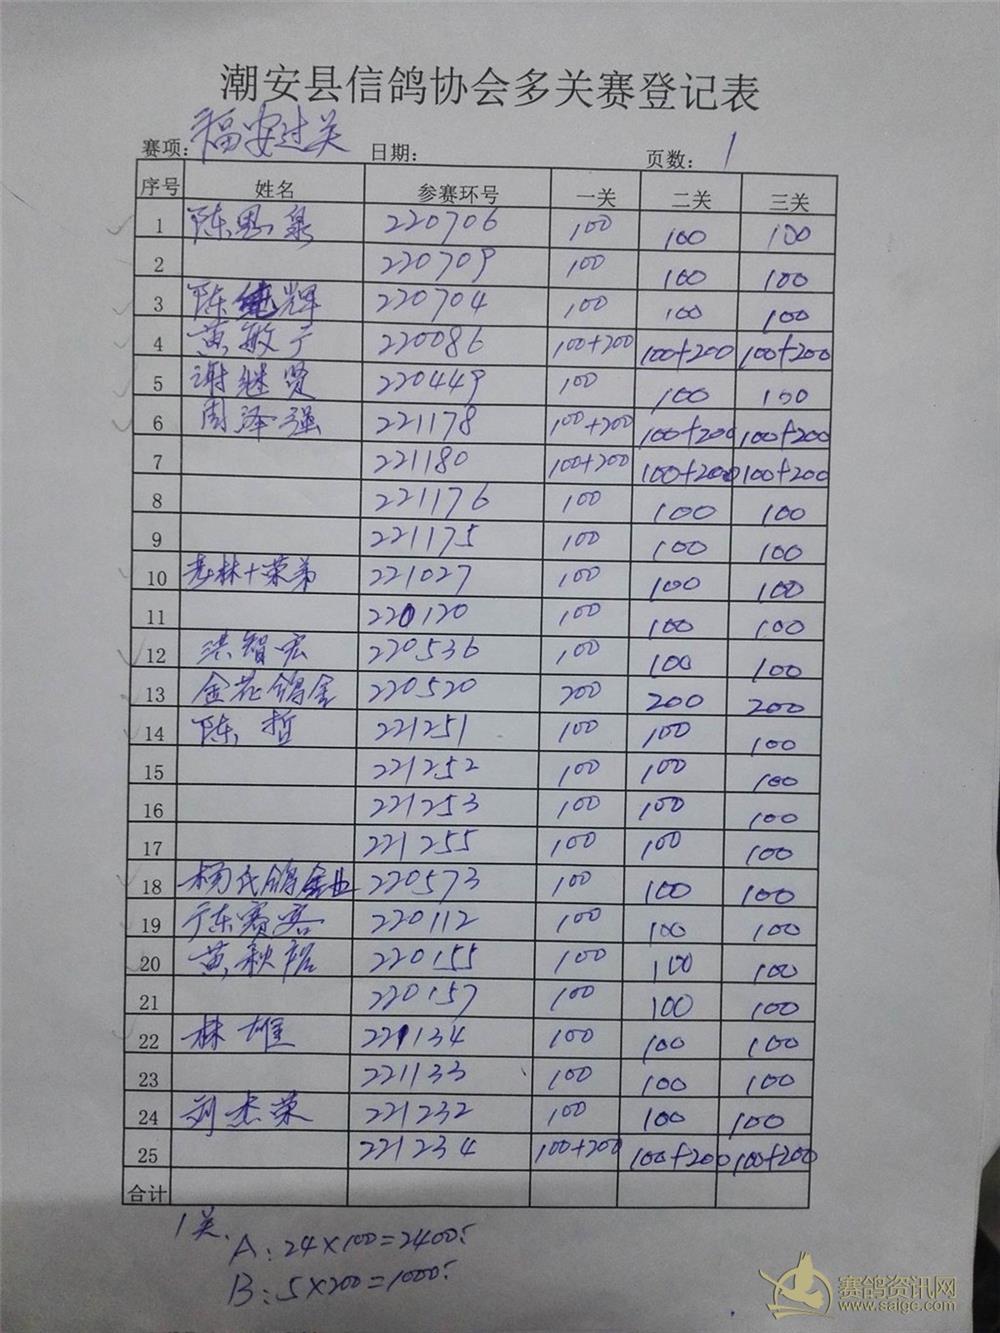 潮安县信鸽协会多关赛登记表
赛项: 福安过关 日期: 页数: 1
序号 姓名 参赛环号 一关 二关 三关
1 陈思泉 220706 100 100 100
2 220709 100 100 100
3 陈 辉 220704 100 100 100
4 黄敏广 220086 100+200 100+200 100+200
5 谢继贤 220449 100 100 100
6 周泽强 221178 100+200 100+200 100+200
7 221180 100+200 100+200 100+200
8 221176 100 100 100
9 221175 100 100 100
10 林+荣弟 221027 100 100 100
11 220120 100 100 100
12 洪智宏 220536 100 100 100
13 金花鸽舍 220520 200 200 200
14 陈哲 221251 100 100 100
15 221252 100 100 100
16 221253 100 100 100
17 221255 100 100 100
18 杨氏鸽业 220573 100 100 100
19 广东赛客 220112 100 100 100
20 黄秋 220155 100 100 100
21 220157 100 100 100
22 林雄 221134 100 100 100
23 221133 100 100 100
24 刘杰荣 221232 100 100 100
25 221234 100+200 100+200 100+200
合计
1关.
A:24×100=2400
B:5×200=1000
赛鸽资讯网
www.saigc.com